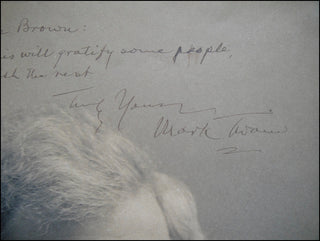 Brown:
is will gratify some people,
th the rest
Truly Yours
Mark Twain